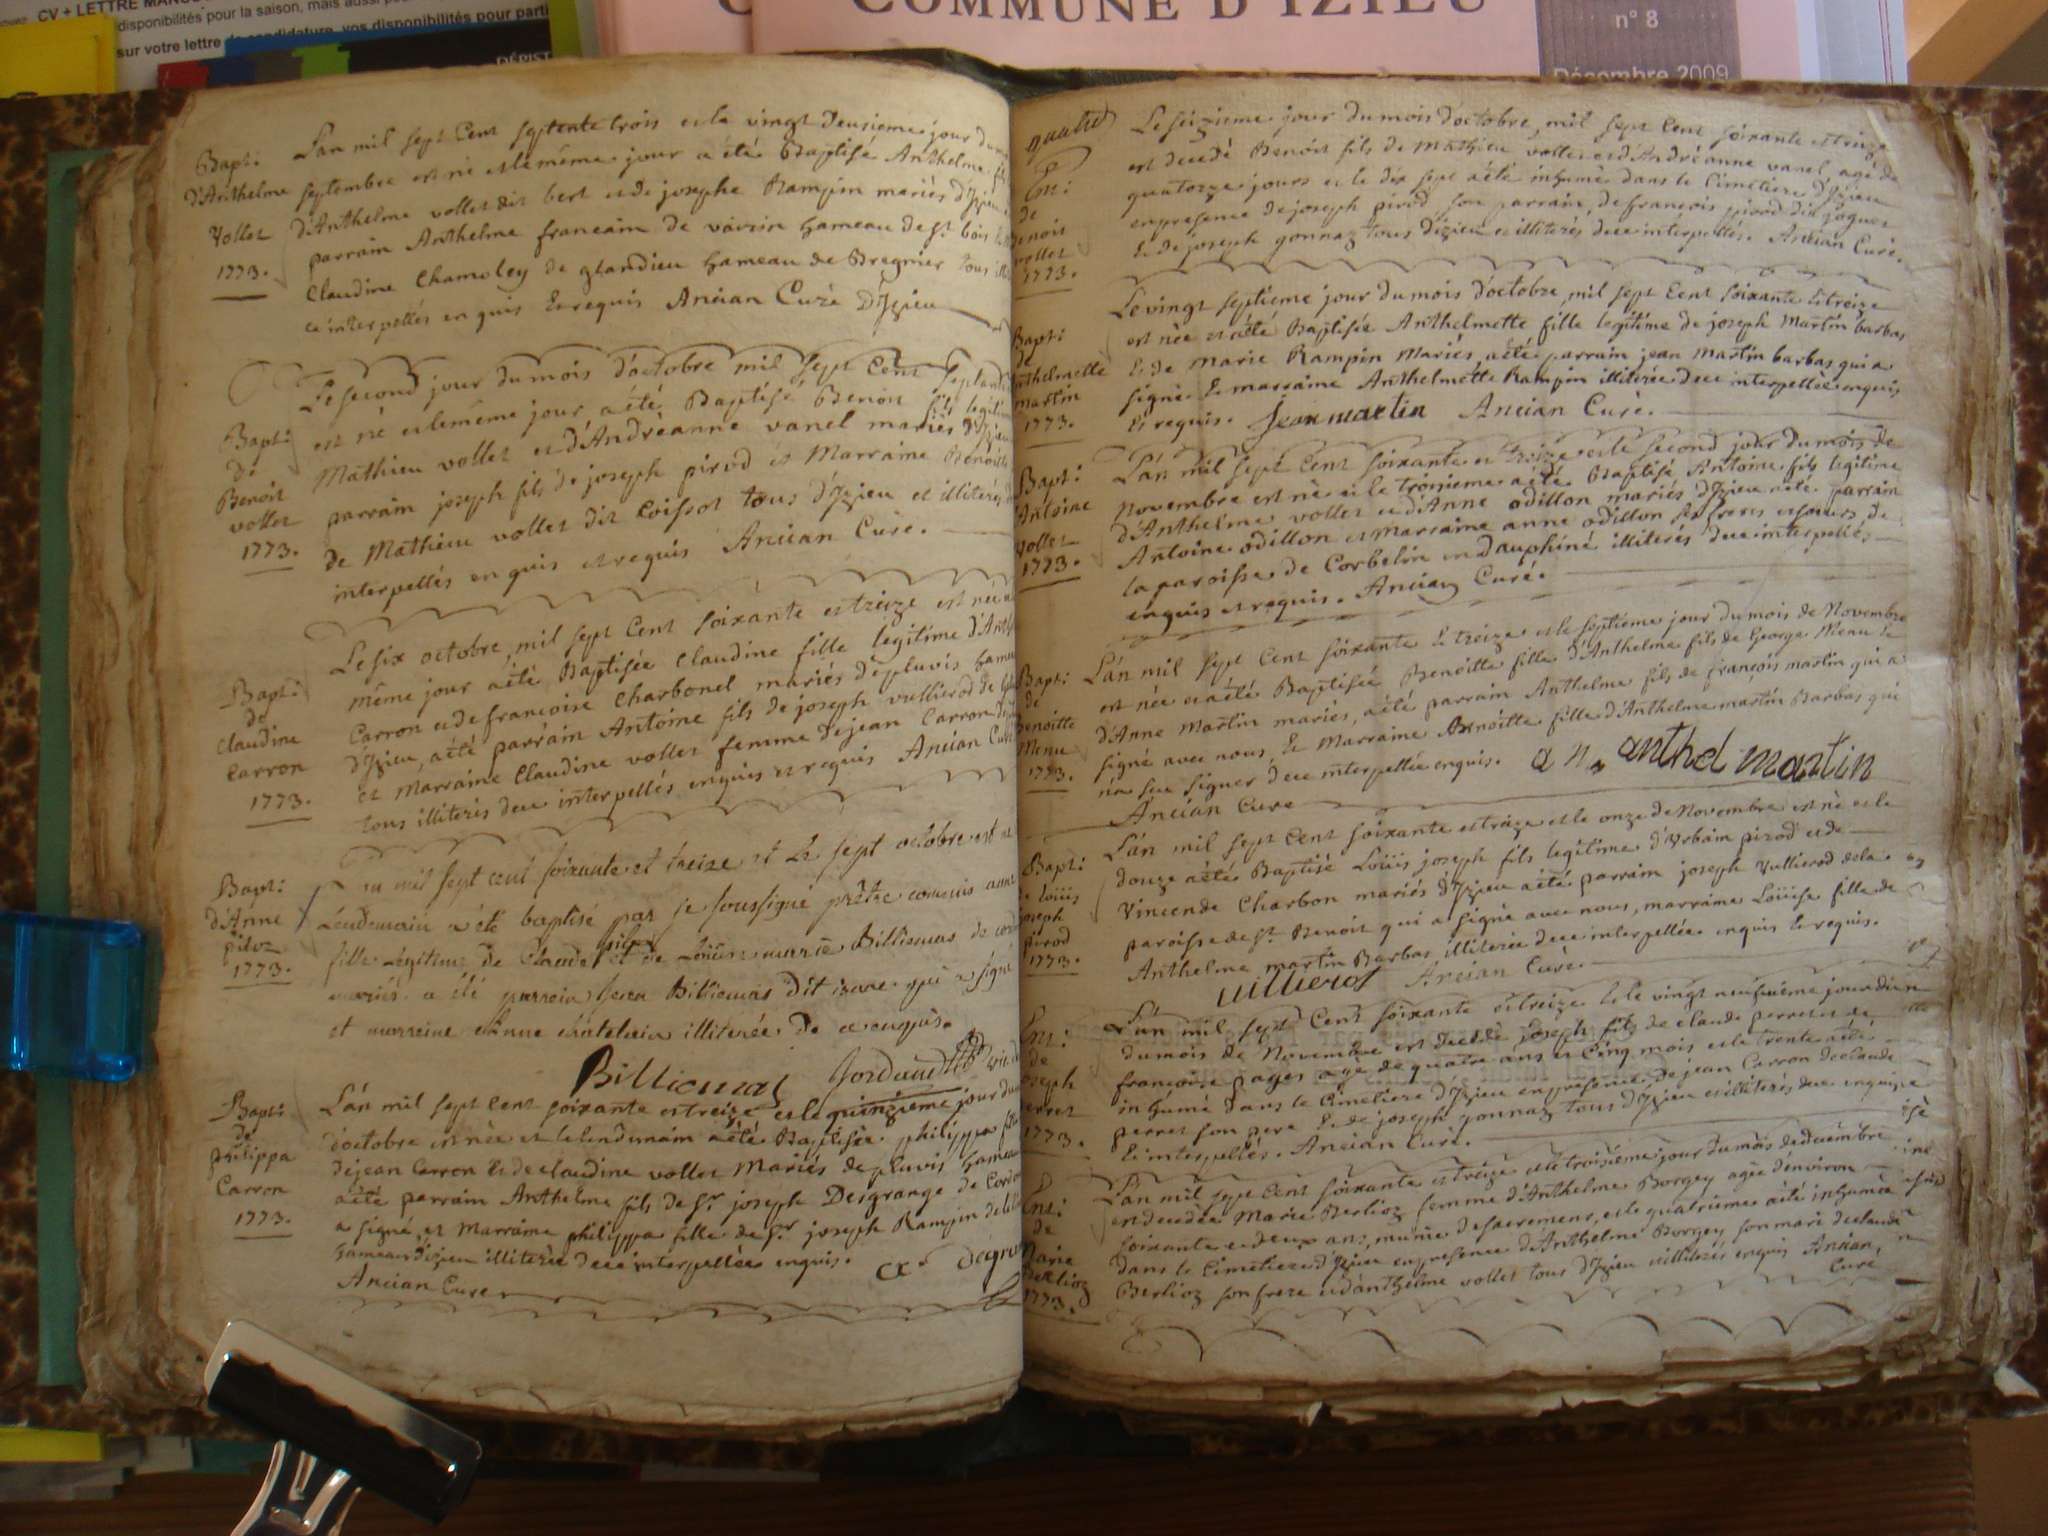 CV + LETTRE MANUS
disponibilités pour la saison, mais aussi
sur votre lettre de candidature, vos disponibilités pour parti
DÉPIST
COMMUNE D'IZIEU
n° 8
Décembre 2009
Bapt:
d'Anthelme
Vollet
1773.
L'an mil sept Cent septente trois et le vingt deusieme jour du
septembre est né et le même jour a été Baptisé Anthelme
d'Anthelme vollet dit bert et de josephe Rampin mariés d'Izieu
parrain Anthelme francain de vavrin hameau de St bois
Claudine Chamoley de glandieu hameau de Bregnier tous
ce interpellés enquis & requis Ancian Curé D'Izieu
Bapt:
de
Benoit
vollet
1773.
Le second jour du mois d'octobre mil sept Cent septante
est né et le même jour a été Baptisé Benoit fils legit
Mathieu vollet et d'Andréanne vanel mariés d'Izieu
parrain joseph fils de joseph pirod et Marraine Benoit
de Mathieu vollet dit Coissot tous d'Izieu et illiterés
interpellés enquis et requis Ancian Curé.
Bapt:
de
Claudine
Carron
1773.
Le six octobre mil sept Cent soixante et treize est née
même jour a été Baptisée Claudine fille legitime d'Anth
Carron et de francoise Charbonel mariés de pluvis hame
d'Izieu, a été parrain Antoine fils de joseph vullierod de
et Marraine Claudine vollet femme de jean Carron
tous illiterés de ce interpellés enquis et requis Ancian Curé
Bapt:
d'Anne
piloz
1773.
L'an mil sept cent soixante et treize et le sept octobre est né
Lendemain a été baptisé par je soussigné prêtre commis anne
fille Légitime de Claude piloz et de Louise marie Billiemas de
mariés a été parrein jean Billiemas dit isare qui a signé
et marreine Anne chatelain illiterée de ce enquise.
Billiemas
Bapt:
de
philippa
Carron
1773.
L'an mil sept Cent soixante et treize et le quinzieme jour du
d'octobre est née et le lendemain a été Baptisée philippa
de jean Carron & de claudine vollet Mariés de pluvis hameau
a été parrain Anthelme fils de Sr joseph Desgrange de Cordon
a signé, et Marraine philippa fille de Sr joseph Rampin de
hameau d'izieu illiterée de ce interpellée enquis.
Ancian Curé
quatre
Ent:
de
Benoit
vollet
1773.
Le seizieme jour du mois d'octobre mil sept Cent soixante et treize
est decedé Benoit fils de Mathieu vollet et d'Andréanne vanel, agé de
quatorze jours et le dix sept a été inhumé dans le Cimetiere d'Izieu
en presence de joseph pirod son parrain, de francois pirod dit jaques
& de joseph gonnaz tous d'izieu et illiterés de ce interpellés. Ancian Curé.
Bapt:
de
Anthelmette
martin
1773.
Le vingt septieme jour du mois d'octobre mil sept Cent soixante & treize
est née et a été Baptisée Anthelmette fille legitime de joseph Martin barbas
& de Marie Rampin Mariés, a été parrain jean Martin barbas qui a
signé & marraine Anthelmette Rampin illiterée de ce interpellée enquis
& requis. Jean martin Ancian Curé.
Bapt:
d'Antoine
Vollet
1773.
L'an mil sept Cent soixante et treize et le second jour du mois de
Novembre est né et le troisieme a été Baptisé Antoine fils legitime
d'Anthelme vollet et d'Anne odillon mariés d'Izieu a été parrain
Antoine odillon et marraine anne odillon ses freres et soeurs de
la paroisse de Corbelin en dauphiné illiterés de ce interpellés
enquis et requis. Ancian Curé.
Bapt:
de
Benoitte
Menu
1773.
L'an mil sept Cent soixante & treize et le septieme jour du mois de Novembre
est née et a été Baptisée Benoitte fille d'Anthelme fils de George Menu &
d'Anne Martin mariés, a été parrain Anthelme fils de françois martin qui a
signé avec nous, & Marraine Benoitte fille d'Anthelme martin Barbas qui
n'a su signer de ce interpellée enquis. a n. anthel martin
Ancian Curé
Bapt:
de Loüis
joseph
pirod
1773.
L'an mil sept Cent soixante et treize et le onze de Novembre est né et le
douze a été Baptisé Loüis joseph fils legitime d'Urbain pirod et de
Vincende Charbon mariés d'Izieu a été parrain joseph Vullierod de la
paroisse de St Benoit qui a signé avec nous, marraine Loüise fille de
Anthelme martin Barbas illiterée de ce interpellée enquis & requis.
vullierod Ancian Curé.
Ent:
de
joseph
perret
1773.
L'an mil sept Cent soixante et treize & le vingt neufvieme jour
du mois de Novembre est decedé joseph fils de claude perret et de
françoise pages agé de quatre ans et Cinq mois et le trente a été
inhumé dans le Cimetiere d'Izieu en presence de jean Carron de claude
perret son pere & de joseph gonnaz tous d'Izieu et illiterés de ce enquis
& interpellés. Ancian Curé.
Ent:
de
Marie
Berlioz
1773.
L'an mil sept Cent soixante et treize et le troisieme jour du mois de decembre
est decedée Marie Berlioz femme d'Anthelme Borgey agée d'environ
soixante et deux ans, munie de sacremens, et le quatrieme a été inhumée
dans le Cimetiere d'Izieu en presence d'Anthelme Borgey son mari de claude
Berlioz son frere et d'anthelme vollet tous d'Izieu illiterés enquis Ancian,
Curé